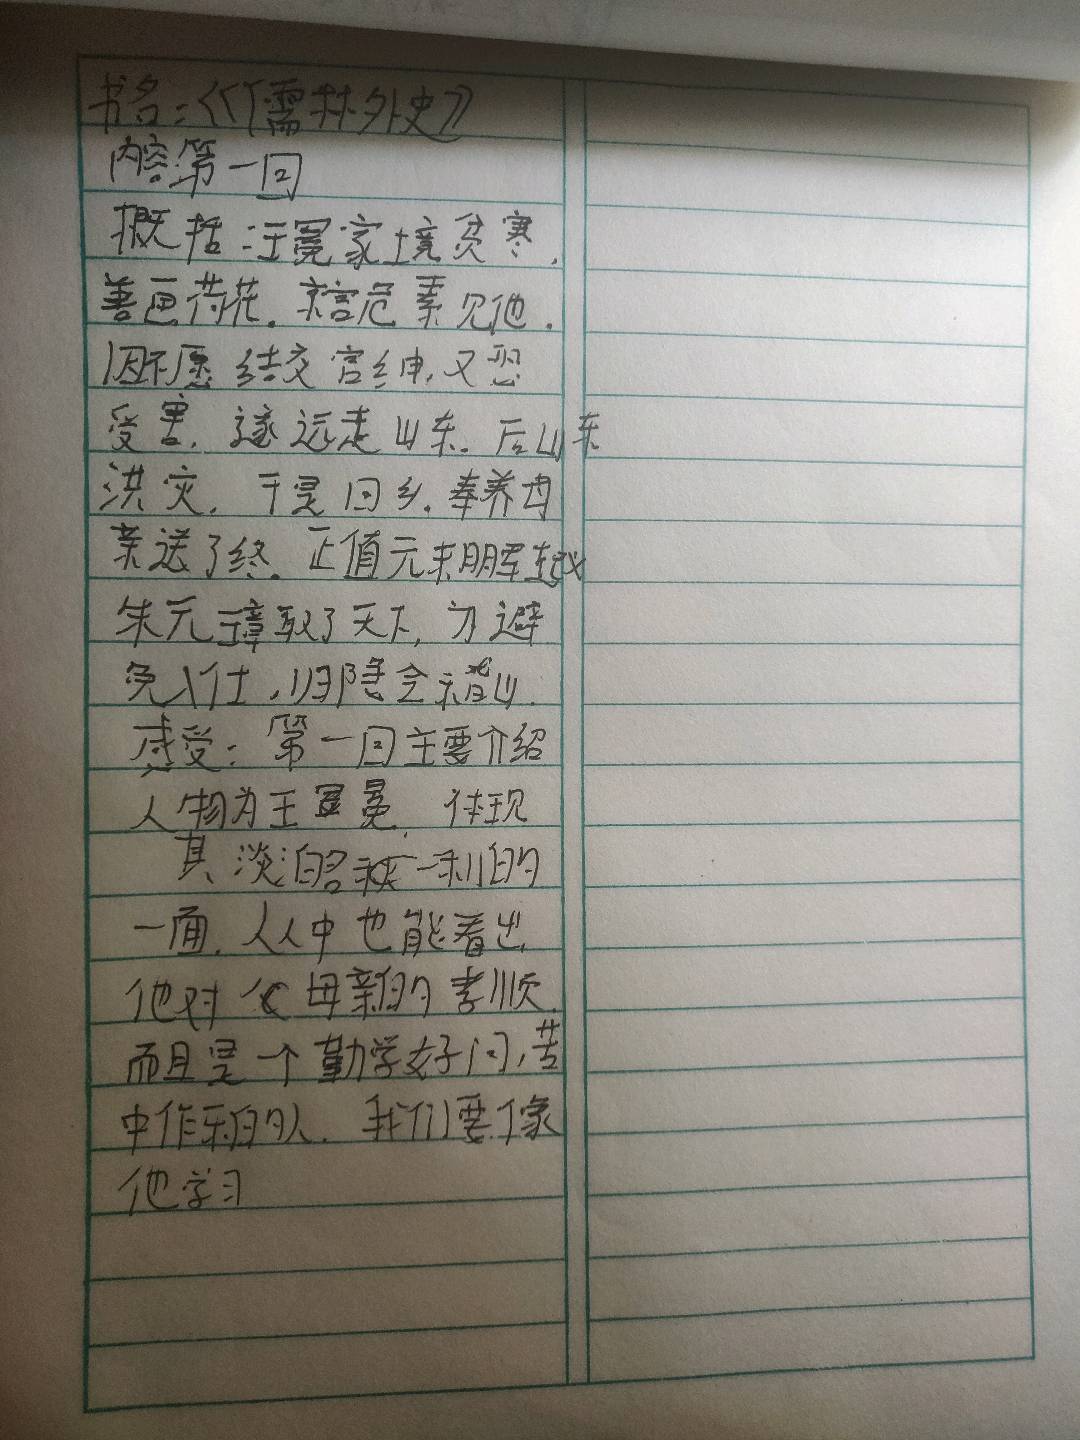 书名：《儒林外史》
内容：第一回
概括：王冕家境贫寒，
善画荷花。京官危素见他，
因不愿结交官绅，又恐
受害，遂远走山东。后山东
洪灾，于是回乡。奉养母
亲送了终。正值元末群起义
朱元璋取了天下，为避
免入仕，归隐会稽山。
感受：第一回主要介绍
人物为王冕，体现
其淡泊名利的
一面，从中也能看出
他对父母亲的孝顺，
而且是一个勤学好问，苦
中作乐的人。我们要像
他学习